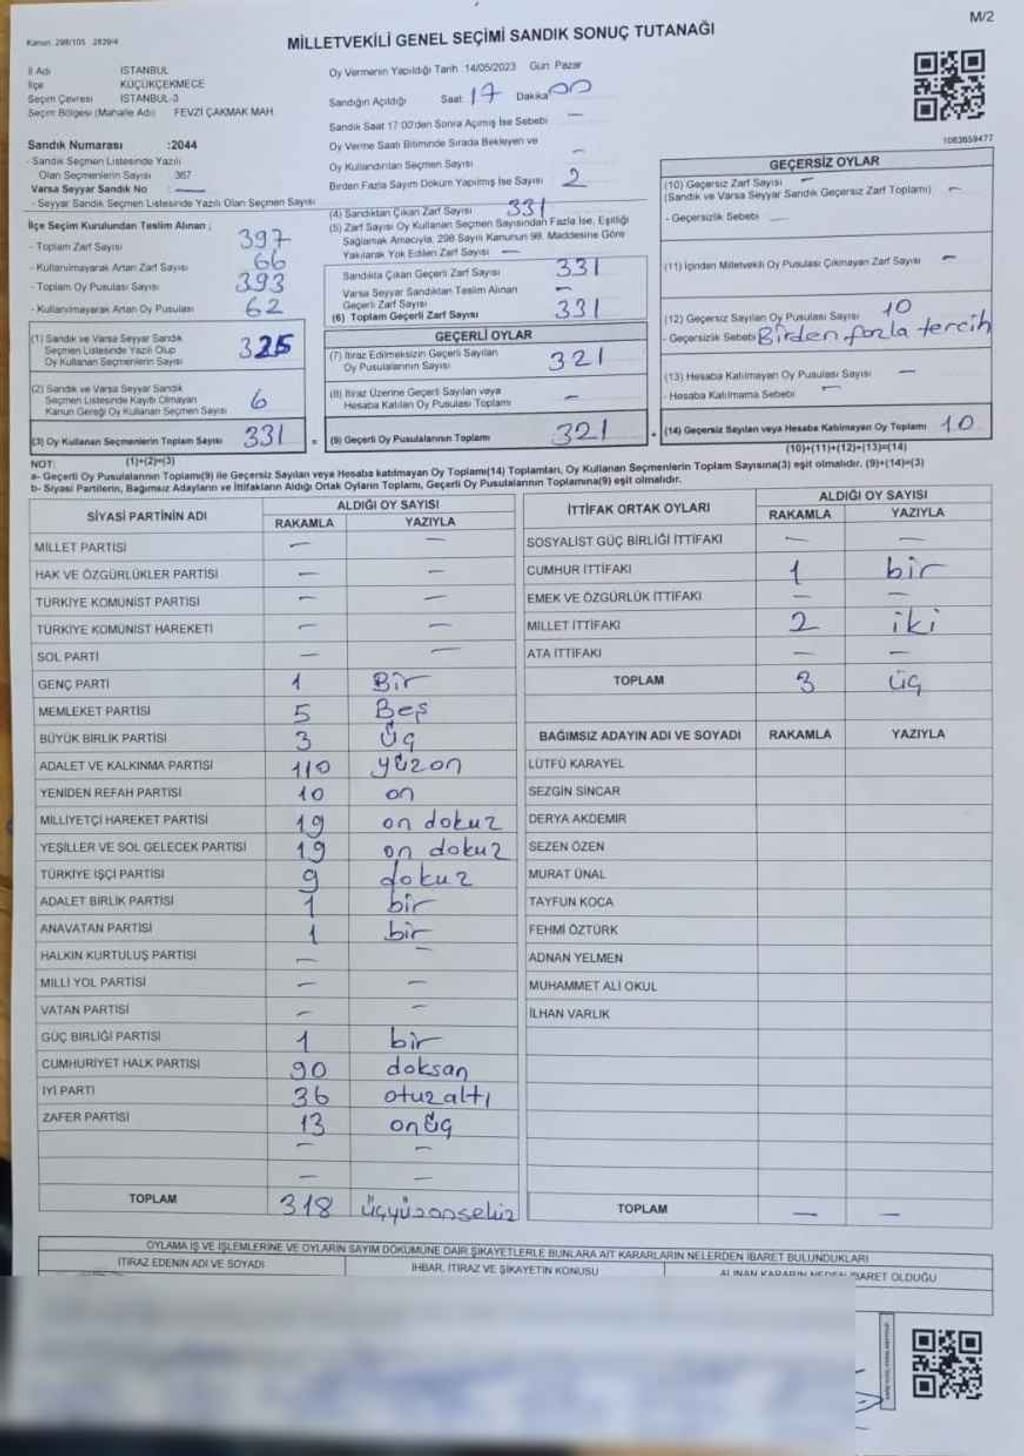 M/2
Kanun: 298/105 2839/4
MİLLETVEKİLİ GENEL SEÇİMİ SANDIK SONUÇ TUTANAĞI
İl Adı İSTANBUL
İlçe KÜÇÜKÇEKMECE
Seçim Çevresi İSTANBUL-3
Seçim Bölgesi (Mahalle Adı) FEVZİ ÇAKMAK MAH
Sandık Numarası :2044
- Sandık Seçmen Listesinde Yazılı
Olan Seçmenlerin Sayısı 367
Varsa Seyyar Sandık No : —
- Seyyar Sandık Seçmen Listesinde Yazılı Olan Seçmen Sayısı
Oy Vermenin Yapıldığı Tarih :14/05/2023 Gün: Pazar
Sandığın Açıldığı Saat: 17 Dakika 00
Sandık Saat 17:00'den Sonra Açmış İse Sebebi —
Oy Verme Saati Bitiminde Sırada Bekleyen ve
Oy Kullandırılan Seçmen Sayısı —
Birden Fazla Sayım Döküm Yapılmış İse Sayısı 2
1083659477
İlçe Seçim Kurulundan Teslim Alınan ;
- Toplam Zarf Sayısı 397
- Kullanılmayarak Artan Zarf Sayısı 66
- Toplam Oy Pusulası Sayısı 393
- Kullanılmayarak Artan Oy Pusulası 62
(1) Sandık ve Varsa Seyyar Sandık
Seçmen Listesinde Yazılı Olup
Oy Kullanan Seçmenlerin Sayısı 325
(2) Sandık ve Varsa Seyyar Sandık
Seçmen Listesinde Kayıtlı Olmayan
Kanun Gereği Oy Kullanan Seçmen Sayısı 6
(3) Oy Kullanan Seçmenlerin Toplam Sayısı 331
(1)+(2)=(3)
(4) Sandıktan Çıkan Zarf Sayısı 331
(5) Zarf Sayısı Oy Kullanan Seçmen Sayısından Fazla İse, Eşitliği
Sağlamak Amacıyla, 298 Sayılı Kanunun 98. Maddesine Göre
Yakılarak Yok Edilen Zarf Sayısı —
Sandıkta Çıkan Geçerli Zarf Sayısı 331
Varsa Seyyar Sandıktan Teslim Alınan
Geçerli Zarf Sayısı —
(6) Toplam Geçerli Zarf Sayısı 331
GEÇERLİ OYLAR
(7) İtiraz Edilmeksizin Geçerli Sayılan
Oy Pusulalarının Sayısı 321
(8) İtiraz Üzerine Geçerli Sayılan veya
Hesaba Katılan Oy Pusulası Toplamı —
= (9) Geçerli Oy Pusulalarının Toplamı 321
GEÇERSİZ OYLAR
(10) Geçersiz Zarf Sayısı —
(Sandık ve Varsa Seyyar Sandık Geçersiz Zarf Toplamı) —
- Geçersizlik Sebebi —
(11) İçinden Milletvekili Oy Pusulası Çıkmayan Zarf Sayısı —
(12) Geçersiz Sayılan Oy Pusulası Sayısı 10
- Geçersizlik Sebebi Birden fazla tercih
(13) Hesaba Katılmayan Oy Pusulası Sayısı —
- Hesaba Katılmama Sebebi —
(14) Geçersiz Sayılan veya Hesaba Katılmayan Oy Toplamı 10
(10)+(11)+(12)+(13)=(14)
NOT:
a- Geçerli Oy Pusulalarının Toplamı(9) ile Geçersiz Sayılan veya Hesaba katılmayan Oy Toplamı(14) Toplamları, Oy Kullanan Seçmenlerin Toplam Sayısına(3) eşit olmalıdır. (9)+(14)=(3)
b- Siyasi Partilerin, Bağımsız Adayların ve İttifakların Aldığı Ortak Oyların Toplamı, Geçerli Oy Pusulalarının Toplamına(9) eşit olmalıdır.
SİYASİ PARTİNİN ADI ALDIĞI OY SAYISI
RAKAMLA YAZIYLA
MİLLET PARTİSİ — —
HAK VE ÖZGÜRLÜKLER PARTİSİ — —
TÜRKİYE KOMÜNİST PARTİSİ — —
TÜRKİYE KOMÜNİST HAREKETİ — —
SOL PARTİ — —
GENÇ PARTİ 1 Bir
MEMLEKET PARTİSİ 5 Beş
BÜYÜK BİRLİK PARTİSİ 3 Üç
ADALET VE KALKINMA PARTİSİ 110 yüzon
YENİDEN REFAH PARTİSİ 10 on
MİLLİYETÇİ HAREKET PARTİSİ 19 on dokuz
YEŞİLLER VE SOL GELECEK PARTİSİ 19 on dokuz
TÜRKİYE İŞÇİ PARTİSİ 9 dokuz
ADALET BİRLİK PARTİSİ 1 bir
ANAVATAN PARTİSİ 1 bir
HALKIN KURTULUŞ PARTİSİ — —
MİLLİ YOL PARTİSİ — —
VATAN PARTİSİ — —
GÜÇ BİRLİĞİ PARTİSİ 1 bir
CUMHURİYET HALK PARTİSİ 90 doksan
İYİ PARTİ 36 otuzaltı
ZAFER PARTİSİ 13 onüç
— —
— —
TOPLAM 318 üçyüzonsekiz
İTTİFAK ORTAK OYLARI ALDIĞI OY SAYISI
RAKAMLA YAZIYLA
SOSYALİST GÜÇ BİRLİĞİ İTTİFAKI — —
CUMHUR İTTİFAKI 1 bir
EMEK VE ÖZGÜRLÜK İTTİFAKI — —
MİLLET İTTİFAKI 2 iki
ATA İTTİFAKI — —
TOPLAM 3 üç
BAĞIMSIZ ADAYIN ADI VE SOYADI RAKAMLA YAZIYLA
LÜTFÜ KARAYEL
SEZGİN SİNCAR
DERYA AKDEMİR
SEZEN ÖZEN
MURAT ÜNAL
TAYFUN KOCA
FEHMİ ÖZTÜRK
ADNAN YELMEN
MUHAMMET ALİ OKUL
İLHAN VARLIK
TOPLAM — —
OYLAMA İŞ VE İŞLEMLERİNE VE OYLARIN SAYIM DÖKÜMÜNE DAİR ŞİKAYETLERLE BUNLARA AİT KARARLARIN NELERDEN İBARET BULUNDUKLARI
İTİRAZ EDENİN ADI VE SOYADI İHBAR, İTİRAZ VE ŞİKAYETİN KONUSU ALINAN KARARIN NEDEN İBARET OLDUĞU